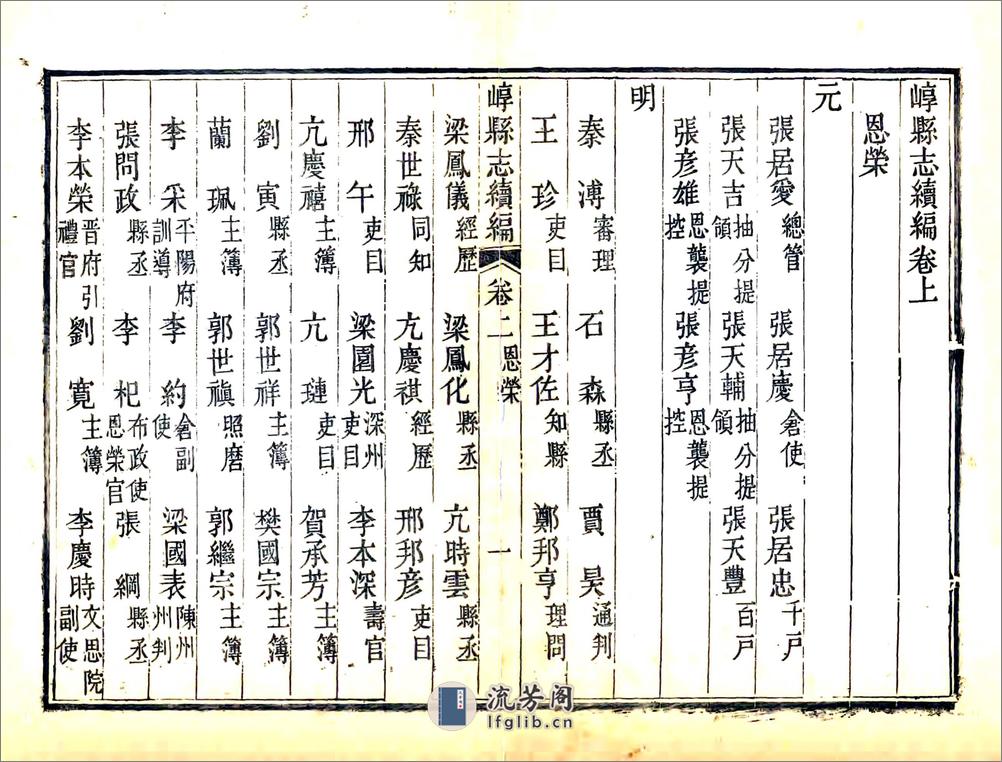 崞縣志續編卷上
恩榮
元
張居愛總管 張居慶倉使 張居忠千戶
張天吉抽分提領 張天輔抽分提領 張天豐百戶
張彥雄恩襲提控 張彥亨恩襲提控
明
秦溥審理 石森縣丞 賈昊通判
王珍吏目 王才佐知縣 鄭邦亨理問
崞縣志續編 卷二恩榮 一
梁鳳儀經歷 梁鳳化縣丞 亢時雲縣丞
秦世祿同知 亢慶祺經歷 邢邦彥吏目
邢午吏目 梁園光深州吏目 李本深壽官
亢慶禧主簿 亢璉吏目 賀承芳主簿
劉寅縣丞 郭世祥主簿 樊國宗主簿
蘭珮主簿 郭世禛照磨 郭繼宗主簿
李采平陽府訓導 李約倉副使 梁國表陳州州判
張問政縣丞 李杞布政使恩榮官 張綱縣丞
李本榮晋府引禮官 劉寬主簿 李慶時文思院副使
流芳阁
lfglib.cn